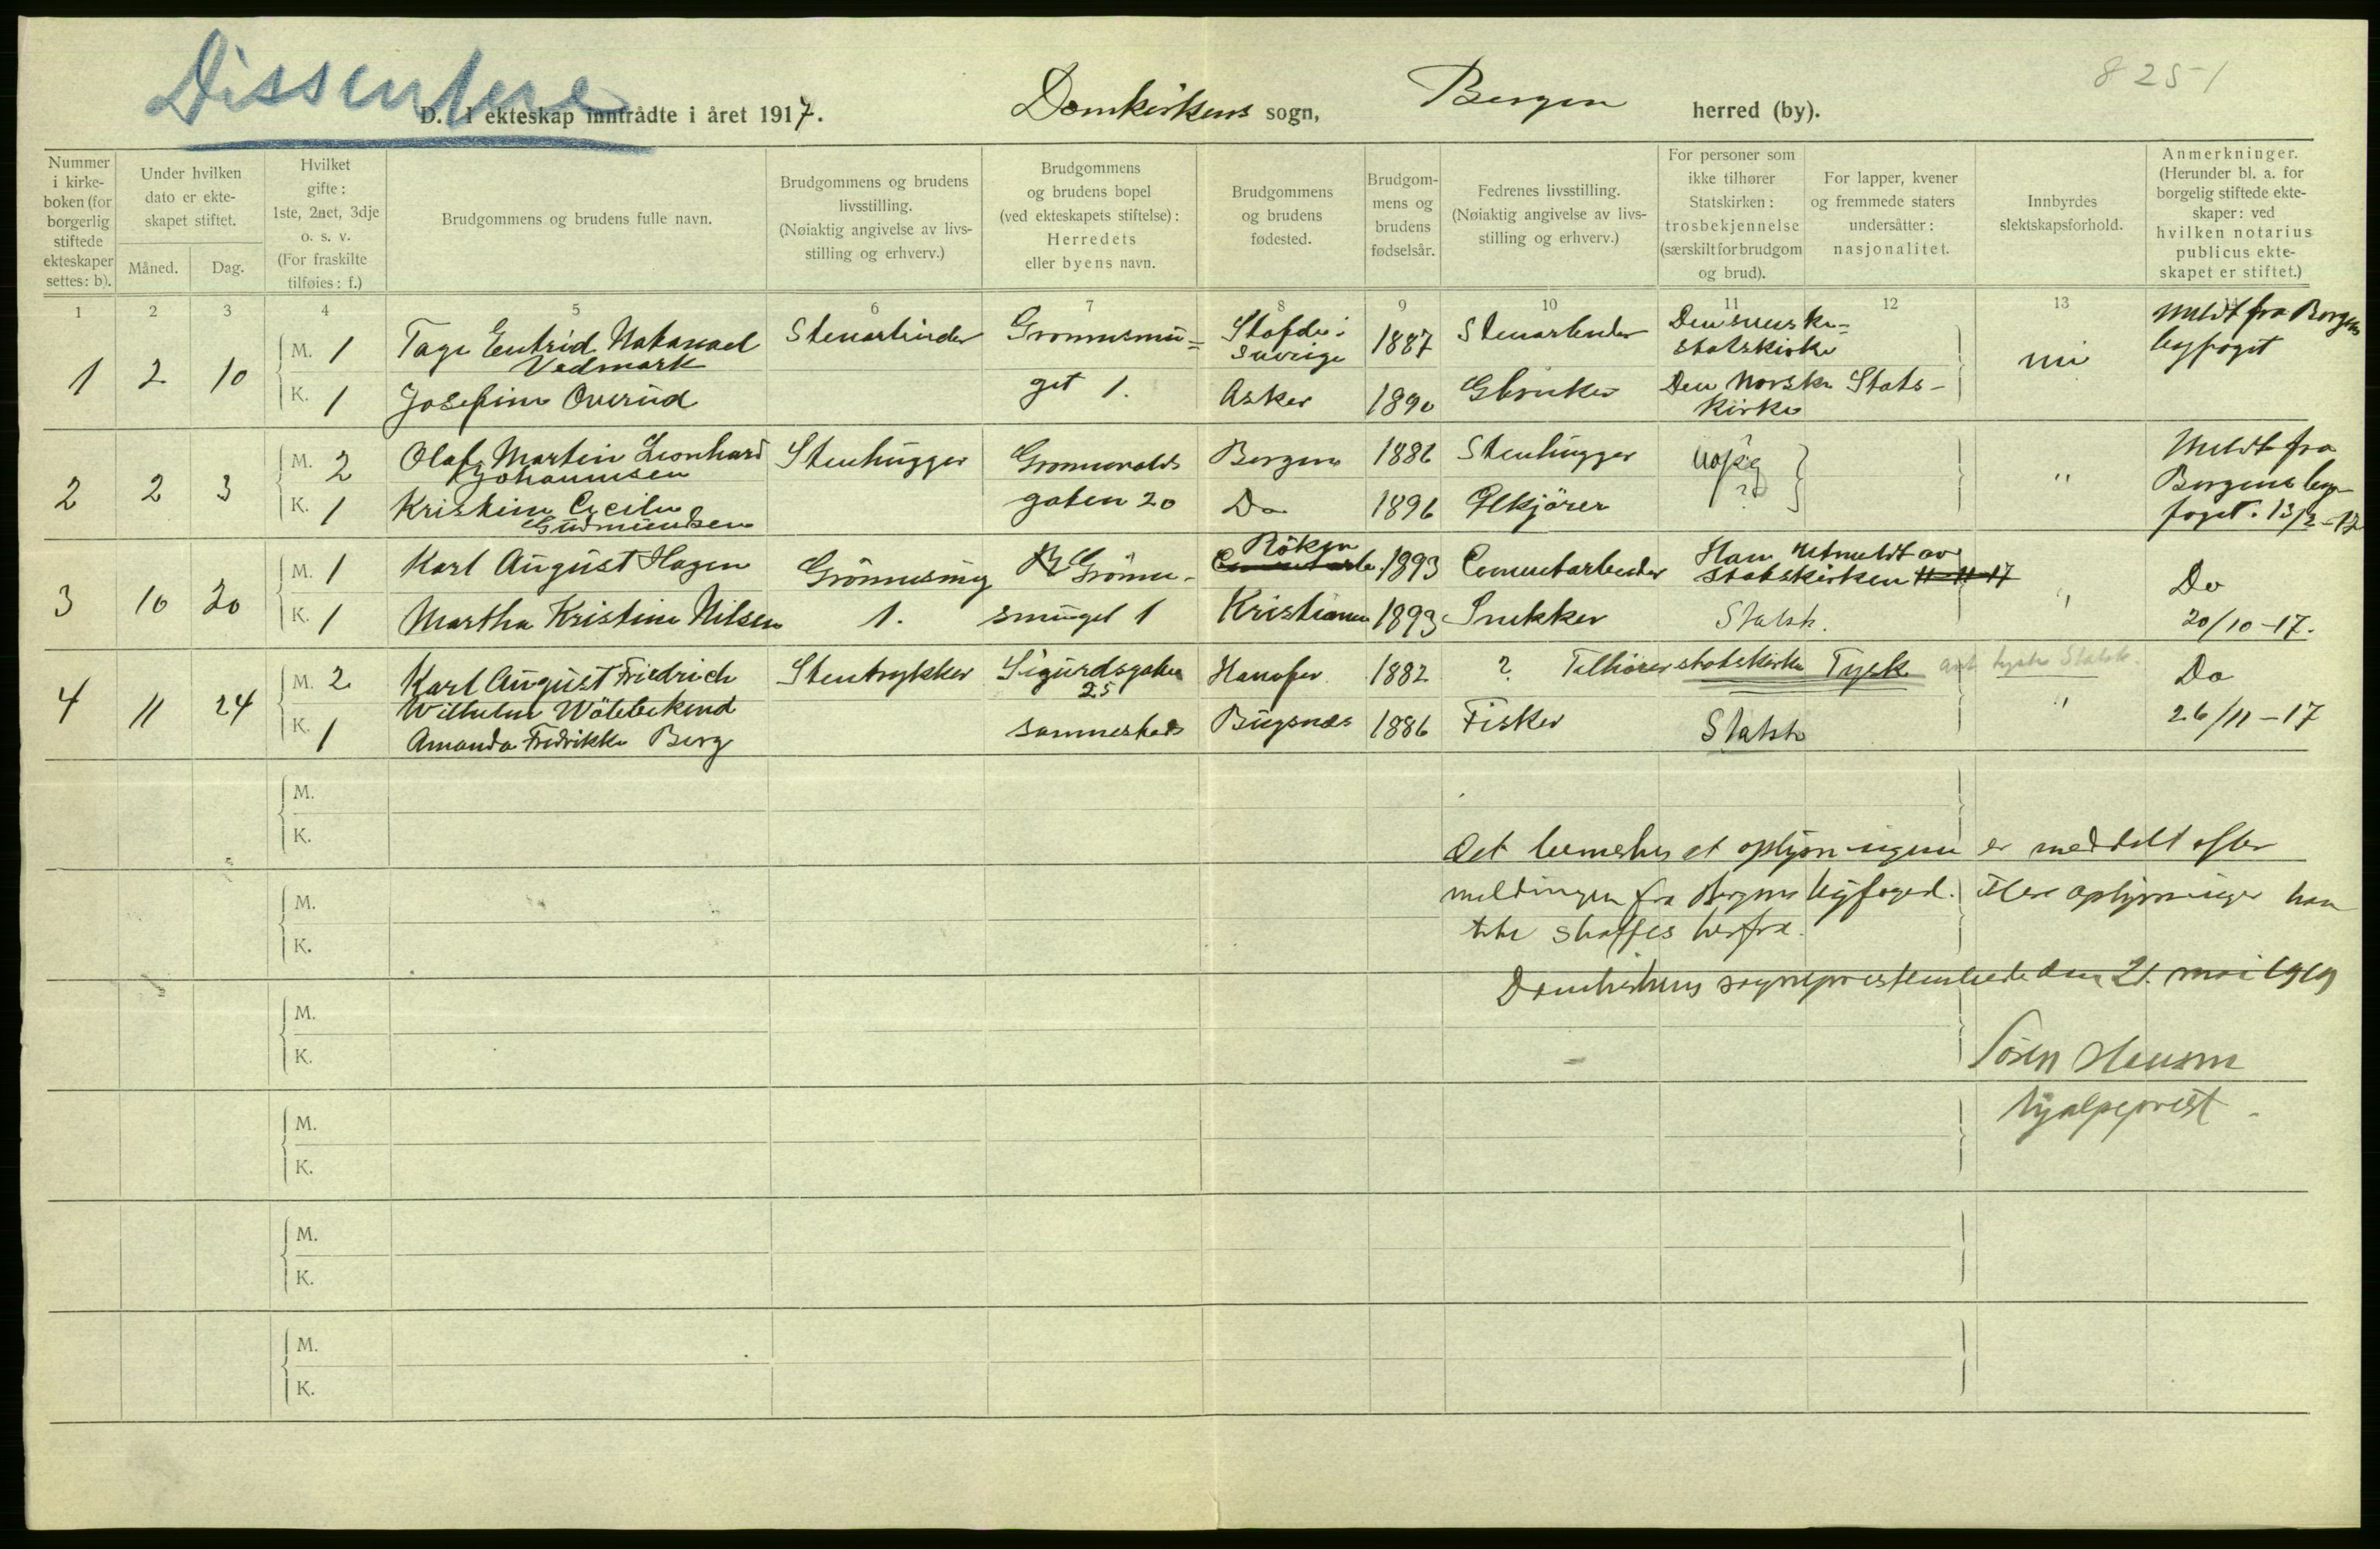 Dissentere
8251
D. I ekteskap inntrådte i året 1917. Domkirkens sogn, Bergen herred (by).
Nummer i kirke-boken (for borgerlig stiftede ekteskaper settes: b).
Under hvilken dato er ekte-skapet stiftet.
Måned. Dag.
Hvilket gifte: 1ste, 2net, 3dje o. s. v. (For fraskilte tilføies: f.)
Brudgommens og brudens fulle navn.
Brudgommens og brudens livsstilling. (Nøiaktig angivelse av livs-stilling og erhverv.)
Brudgommens og brudens bopel (ved ekteskapets stiftelse): Herredets eller byens navn.
Brudgommens og brudens fødested.
Brudgom-mens og brudens fødselsår.
Fedrenes livsstilling. (Nøiaktig angivelse av livs-stilling og erhverv.)
For personer som ikke tilhører Statskirken: trosbekjennelse (særskilt for brudgom og brud).
For lapper, kvener og fremmede staters undersåtter: nasjonalitet.
Innbyrdes slektskapsforhold.
Anmerkninger. (Herunder bl. a. for borgelig stiftede ekte-skaper: ved hvilken notarius publicus ekte-skapet er stiftet.)
1 2 3 4 5 6 7 8 9 10 11 12 13
1 2 10 M. 1 Tage Natanael Vedmark Stenarbeider Gronnesmu= Sverige 1887 Stenarbeider Den svenske= statskirke Meldt fra Bergens byfoget
K. 1 Josefine Overud get 1. Asker 1890 Den Norske Stats-kirke
2 2 3 M. 2 Olaf Martin Leonhard Johannesen Stenhugger Gronevolds Bergen 1886 Stenhugger Uopg ? " Meldt fra
K. 1 Kristine Cecilie Gudmundsen gaten 20 Do 1896 Ølkjörer Bergens by-foget. 13/2-17
3 10 20 M. 1 Karl August Hagen Grönnesmug Grönne- Röken 1893 Cementarbeider Han utmeldt av statskirken 11-11-17 " Do
K. 1 Martha Kristine Nilsen 1. smuget 1 Kristiania 1893 Snekker Statsk. 20/10-17.
4 11 24 M. 2 Karl August Friedrich Wilhelm Wötebekend Stentrykker Sigurdsgaten 25 Hanofer 1882 ? Tilhörer statskirke Tysk ant tyske Statsk. " Do
K. 1 Amanda Fredrikke Berg sammesteds Bugsnes 1886 Fisker Statsk 26/11-17
M.
K.
Det bemerkes at oplysningene er meddelt efter
meldingen fra Bergens byfoged. Flere oplysninger kan
ikke skaffes herfra.
M.
K.
Domkirkens sogneprestembede den 21. mai 1919
M.
K.
Sören Hansen
hjelpeprest.
M.
K.
M.
K.
M.
K.